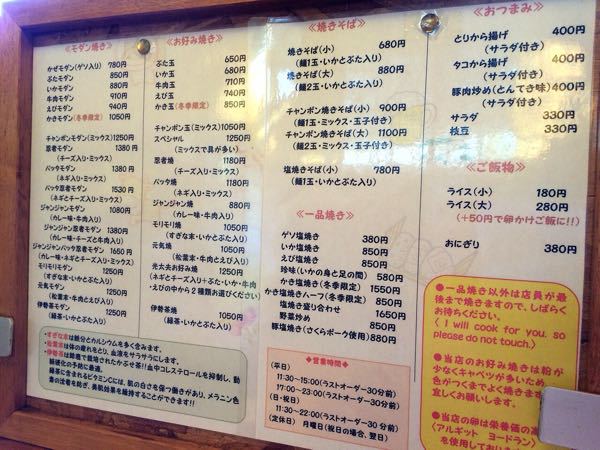 ≪モダン焼き≫
かぜモダン(ゲソ入り) 780円
ぶたモダン 850円
いかモダン 880円
牛肉モダン 910円
えびモダン 940円
かきモダン(冬季限定) 1050円
チャンポンモダン(ミックス)1250円
忍者モダン 1380円
(チーズ入り・ミックス)
バッタモダン 1380円
(ネギ入り・ミックス)
バッタ忍者モダン 1530円
(ネギとチーズ入り・ミックス)
ジャンジャンモダン 1080円
(カレー味・牛肉入り)
ジャンジャン忍者モダン 1380円
(カレー味・チーズと牛肉入り)
ジャンジャンバッタ忍者モダン 1650円
(カレー味・ネギとチーズ入り・ミックス)
モリモリモダン 1250円
(すぎな末・いかとぶた入り)
元気モダン 1250円
(松葉末・牛肉とえび入り)
伊勢茶モダン 1250円
(緑茶・いかとぶた入り)
≪お好み焼き≫
ぶた玉 650円
いか玉 680円
牛肉玉 710円
えび玉 740円
かき玉(冬季限定) 850円
チャンポン玉(ミックス)1050円
スペシャル 1250円
(ミックスで具が多い)
忍者焼 1180円
(チーズ入り・ミックス)
バッタ焼 1180円
(ネギ入り・ミックス)
ジャンジャン焼 880円
(カレー味・牛肉入り)
モリモリ焼 1050円
(すぎな末・いかとぶた入り)
元気焼 1050円
(松葉末・牛肉とえび入り)
光太夫お好み焼 1250円
(ネギとチーズ入り+ぶた・いか・牛肉
・えびの中から2種類お選びください)
伊勢茶焼 1050円
(緑茶・いかとぶた入り)
・すぎな末は鉄分とカルシウムを多く含みます。
・松葉末は体の疲れをとり、血液をサラサラにします。
・伊勢茶は鈴鹿で栽培されたかぶせ茶!!血中コレステロールを抑制し、動
脈硬化の予防に最適。
緑茶に含まれるビタミンCには、肌の白さを保つ働きがあり、メラニン色
素の沈着を防ぎ、美肌効果を維持することができます!!
≪焼きそば≫
焼きそば(小) 680円
(麺1玉・いかとぶた入り)
焼きそば(大) 880円
(麺2玉・いかとぶた入り)
チャンポン焼きそば(小) 900円
(麺1玉・ミックス・玉子付き)
チャンポン焼きそば(大) 1100円
(麺2玉・ミックス・玉子付き)
塩焼きそば(小) 780円
(麺1玉・いかとぶた入り)
≪一品焼き≫
ゲソ塩焼き 380円
いか塩焼き 580円
えび塩焼き 580円
珍味(いかの身と足の間) 580円
かき塩焼き(冬季限定) 1550円
かき塩焼きハーフ(冬季限定) 850円
塩焼き盛り合わせ 1650円
野菜炒め 550円
豚塩焼き(さくらポーク使用) 880円
◆営業時間◆
(平日)
11:30~15:00(ラストオーダー30分前)
17:00~23:00(ラストオーダー30分前)
(日・祝日)
11:30~22:00(ラストオーダー30分前)
(定休日) 月曜日(祝日の場合、翌日)
≪おつまみ≫
とりから揚げ 400円
(サラダ付き)
タコから揚げ 400円
(サラダ付き)
豚肉炒め(とんてき味)400円
(サラダ付き)
サラダ 330円
枝豆 330円
≪ご飯物≫
ライス(小) 180円
ライス(大) 280円
(+50円で卵かけご飯に!!)
おにぎり 380円
●一品焼き以外は店員が最
後まで焼きますので、しばらく
お待ちください。
( I will cook for you. so
please do not touch.)
●当店のお好み焼きは粉が
少なくキャベツが多いため
色がつくまでよく焼きます
宜しくお願いします。
●当店の卵は栄養価の高
〈アルギット ヨードラン〉
を使用しており